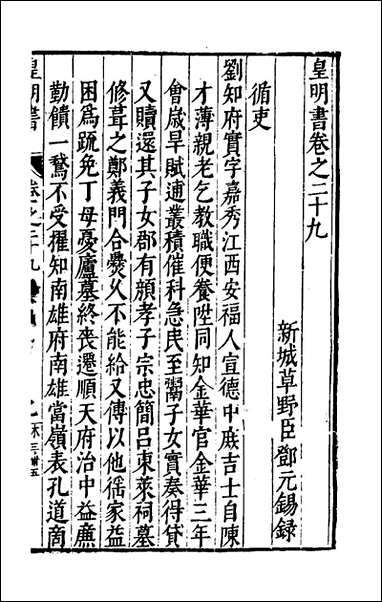 皇明書卷之二十九
新城草野臣鄧元錫録
循吏
劉知府實字嘉秀江西安福人宣德中庶吉士自陳
才薄親老乞教職便養陞同知金華官金華三年
會歲旱賦逋叢積催科急民至鬻子女實奏得貸
又贖還其子女郡有顔孝子宗忠簡吕東萊祠墓
修葺之鄭義門合爨乆不能給又傅以他徭家益
困爲䟽免丁母憂廬墓終喪還順天府治中益㢘
勤饋一鶩不受擢知南雄府南雄當嶺表孔道啇
皇明書